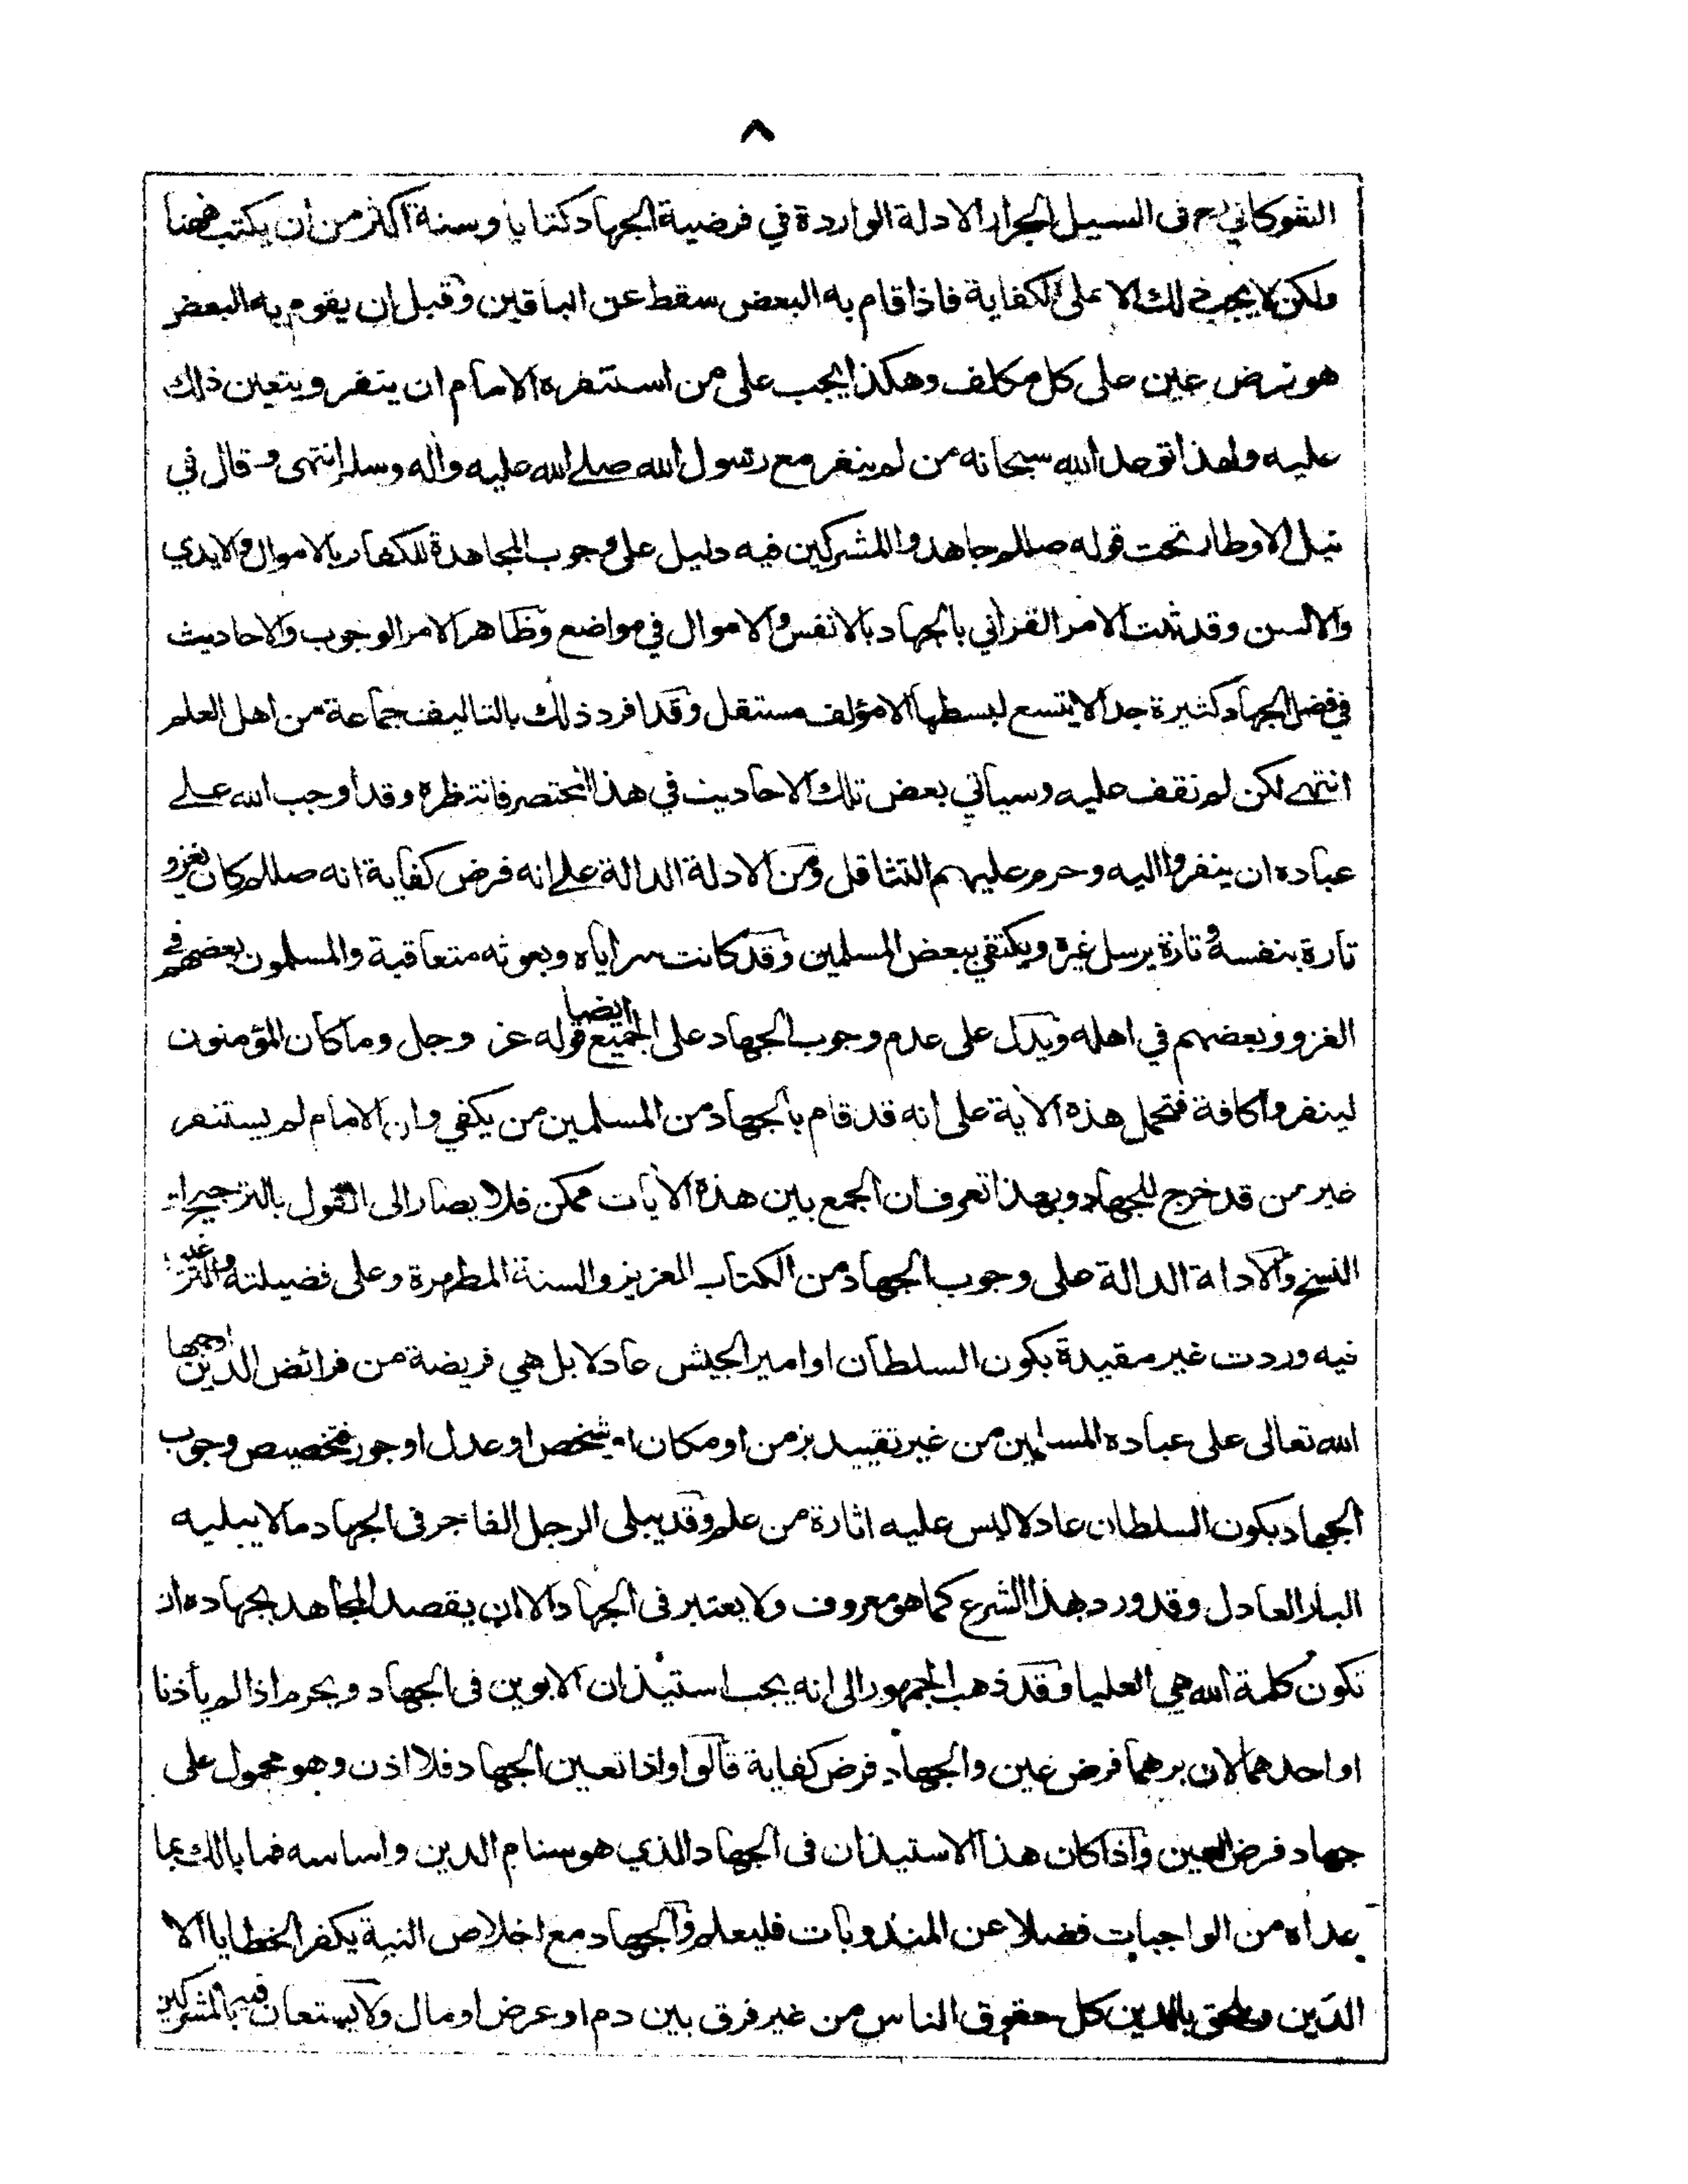 ٨
الشوكاني رح فى السيل الجرار الادلة الواردة في فرضية الجهاد كتابا وسنة اكثر من ان يكتب ههنا
ولكن لا يجب ذلك الا على الكفاية فاذا قام به البعض سقط عن الباقين وقبل ان يقوم به البعض
هو فرض عين على كل مكلف وهكذا يجب على من استنفره الامام ان ينفر ويتعين ذلك
عليه ولهذا توعد الله سبحانه من لم ينفر مع رسول الله صلے الله عليه واله وسلم انتهى وقال في
نيل الاوطار تحت قوله صللم جاهدوا المشركين فيه دليل على وجوب المجاهدة للكفار بالاموال والايدي
والالسن وقد ثبت الامر القرآني بالجهاد بالانفس والاموال في مواضع وظاهر الامر الوجوب والاحاديث
في فضل الجهاد كثيرة جدا لا يتسع لبسطها الا مؤلف مستقل وقد افرد ذلك بالتاليف جماعة من اهل العلم
انتهے لكن لم نقف عليه وسياتي بعض تلك الاحاديث في هذا المختصر فانتظره وقد اوجب الله علے
عباده ان ينفروا اليه وحرم عليهم التثاقل ومن الادلة الدالة علے انه فرض كفاية انه صللم كان يغزو
تارة بنفسه وتارة يرسل غيره ويكتفي ببعض المسلمين وقد كانت سراياه وبعوثه متعاقبة والمسلمون بعضهم في
الغزو وبعضهم في اهله ويدل على عدم وجوب الجهاد على الجميع ايضا قوله عز وجل وما كان المؤمنون
لينفروا كافة فتحمل هذه الآية على انه قد قام بالجهاد من المسلمين من يكفي وان الامام لم يستنفر
غير من قد خرج للجهاد وبهذا تعرف ان الجمع بين هذه الآيات ممكن فلا يصار الى القول بالترجيح او
النسخ والادلة الدالة على وجوب الجهاد من الكتاب العزيز والسنة المطهرة وعلى فضيلته والترغيب
فيه وردت غير مقيدة بكون السلطان او امير الجيش عادلا بل هي فريضة من فرائض الدين اوجبها
الله تعالى على عباده المسلمين من غير تقييد بزمن او مكان او شخص او عدل او جور فتخصيص وجوب
الجهاد بكون السلطان عادلا ليس عليه اثارة من علم وقد يبلى الرجل الفاجر فى الجهاد ما لا يبليه
البار العادل وقد ورد بهذا الشرع كما هو معروف ولا يعتبر فى الجهاد الا ان يقصد المجاهد بجهاده ان
تكون كلمة الله هي العليا وقد ذهب الجمهور الى انه يجب استيذان الابوين فى الجهاد ويحرم اذا لم يأذنا
او احدهما لان برهما فرض عين والجهاد فرض كفاية قالوا واذا تعين الجهاد فلا اذن وهو محمول على
جهاد فرض العين واذا كان هذا الاستيذان فى الجهاد الذي هو سنام الدين واساسه فما بالك بما
عداه من الواجبات فضلا عن المندوبات فليعلم والجهاد مع اخلاص النية يكفر الخطايا الا
الدَين ويلحق بالدين كل حقوق الناس من غير فرق بين دم او عرض او مال ولا يستعان فيه بالمشركين